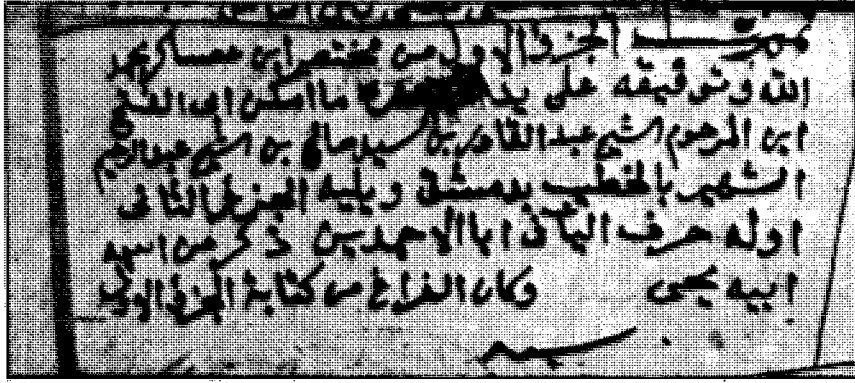 تمت الجزء الاول من مختصر ابن عساكر بحمد
الله وتوفيقه على يد ما امكن ابى الفتح
ابن المرحوم الشيخ عبد القادر بن سيد صالح بن الشيخ عبد الرحيم
الشهير بالخطيب بدمشق ويليه الجزء الثانى
اوله حرف اليا فى ابا الاحمدين ذكر من اسم
ابيه يحيى وكان الفراغ من كتابة الجزء الاول